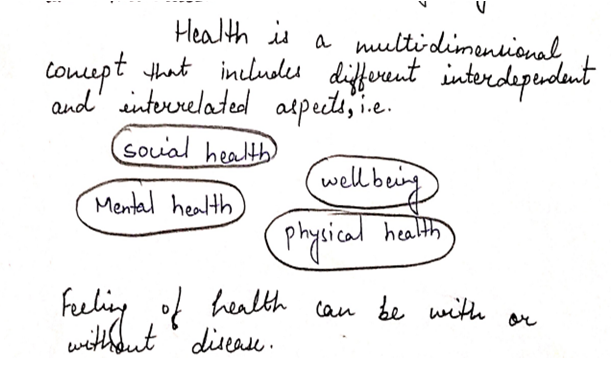 Health is a multidimensional
concept that includes different interdependent
and interrelated aspects, i.e.
social health
wellbeing
Mental health
physical health
Feeling of health can be with or
without disease.